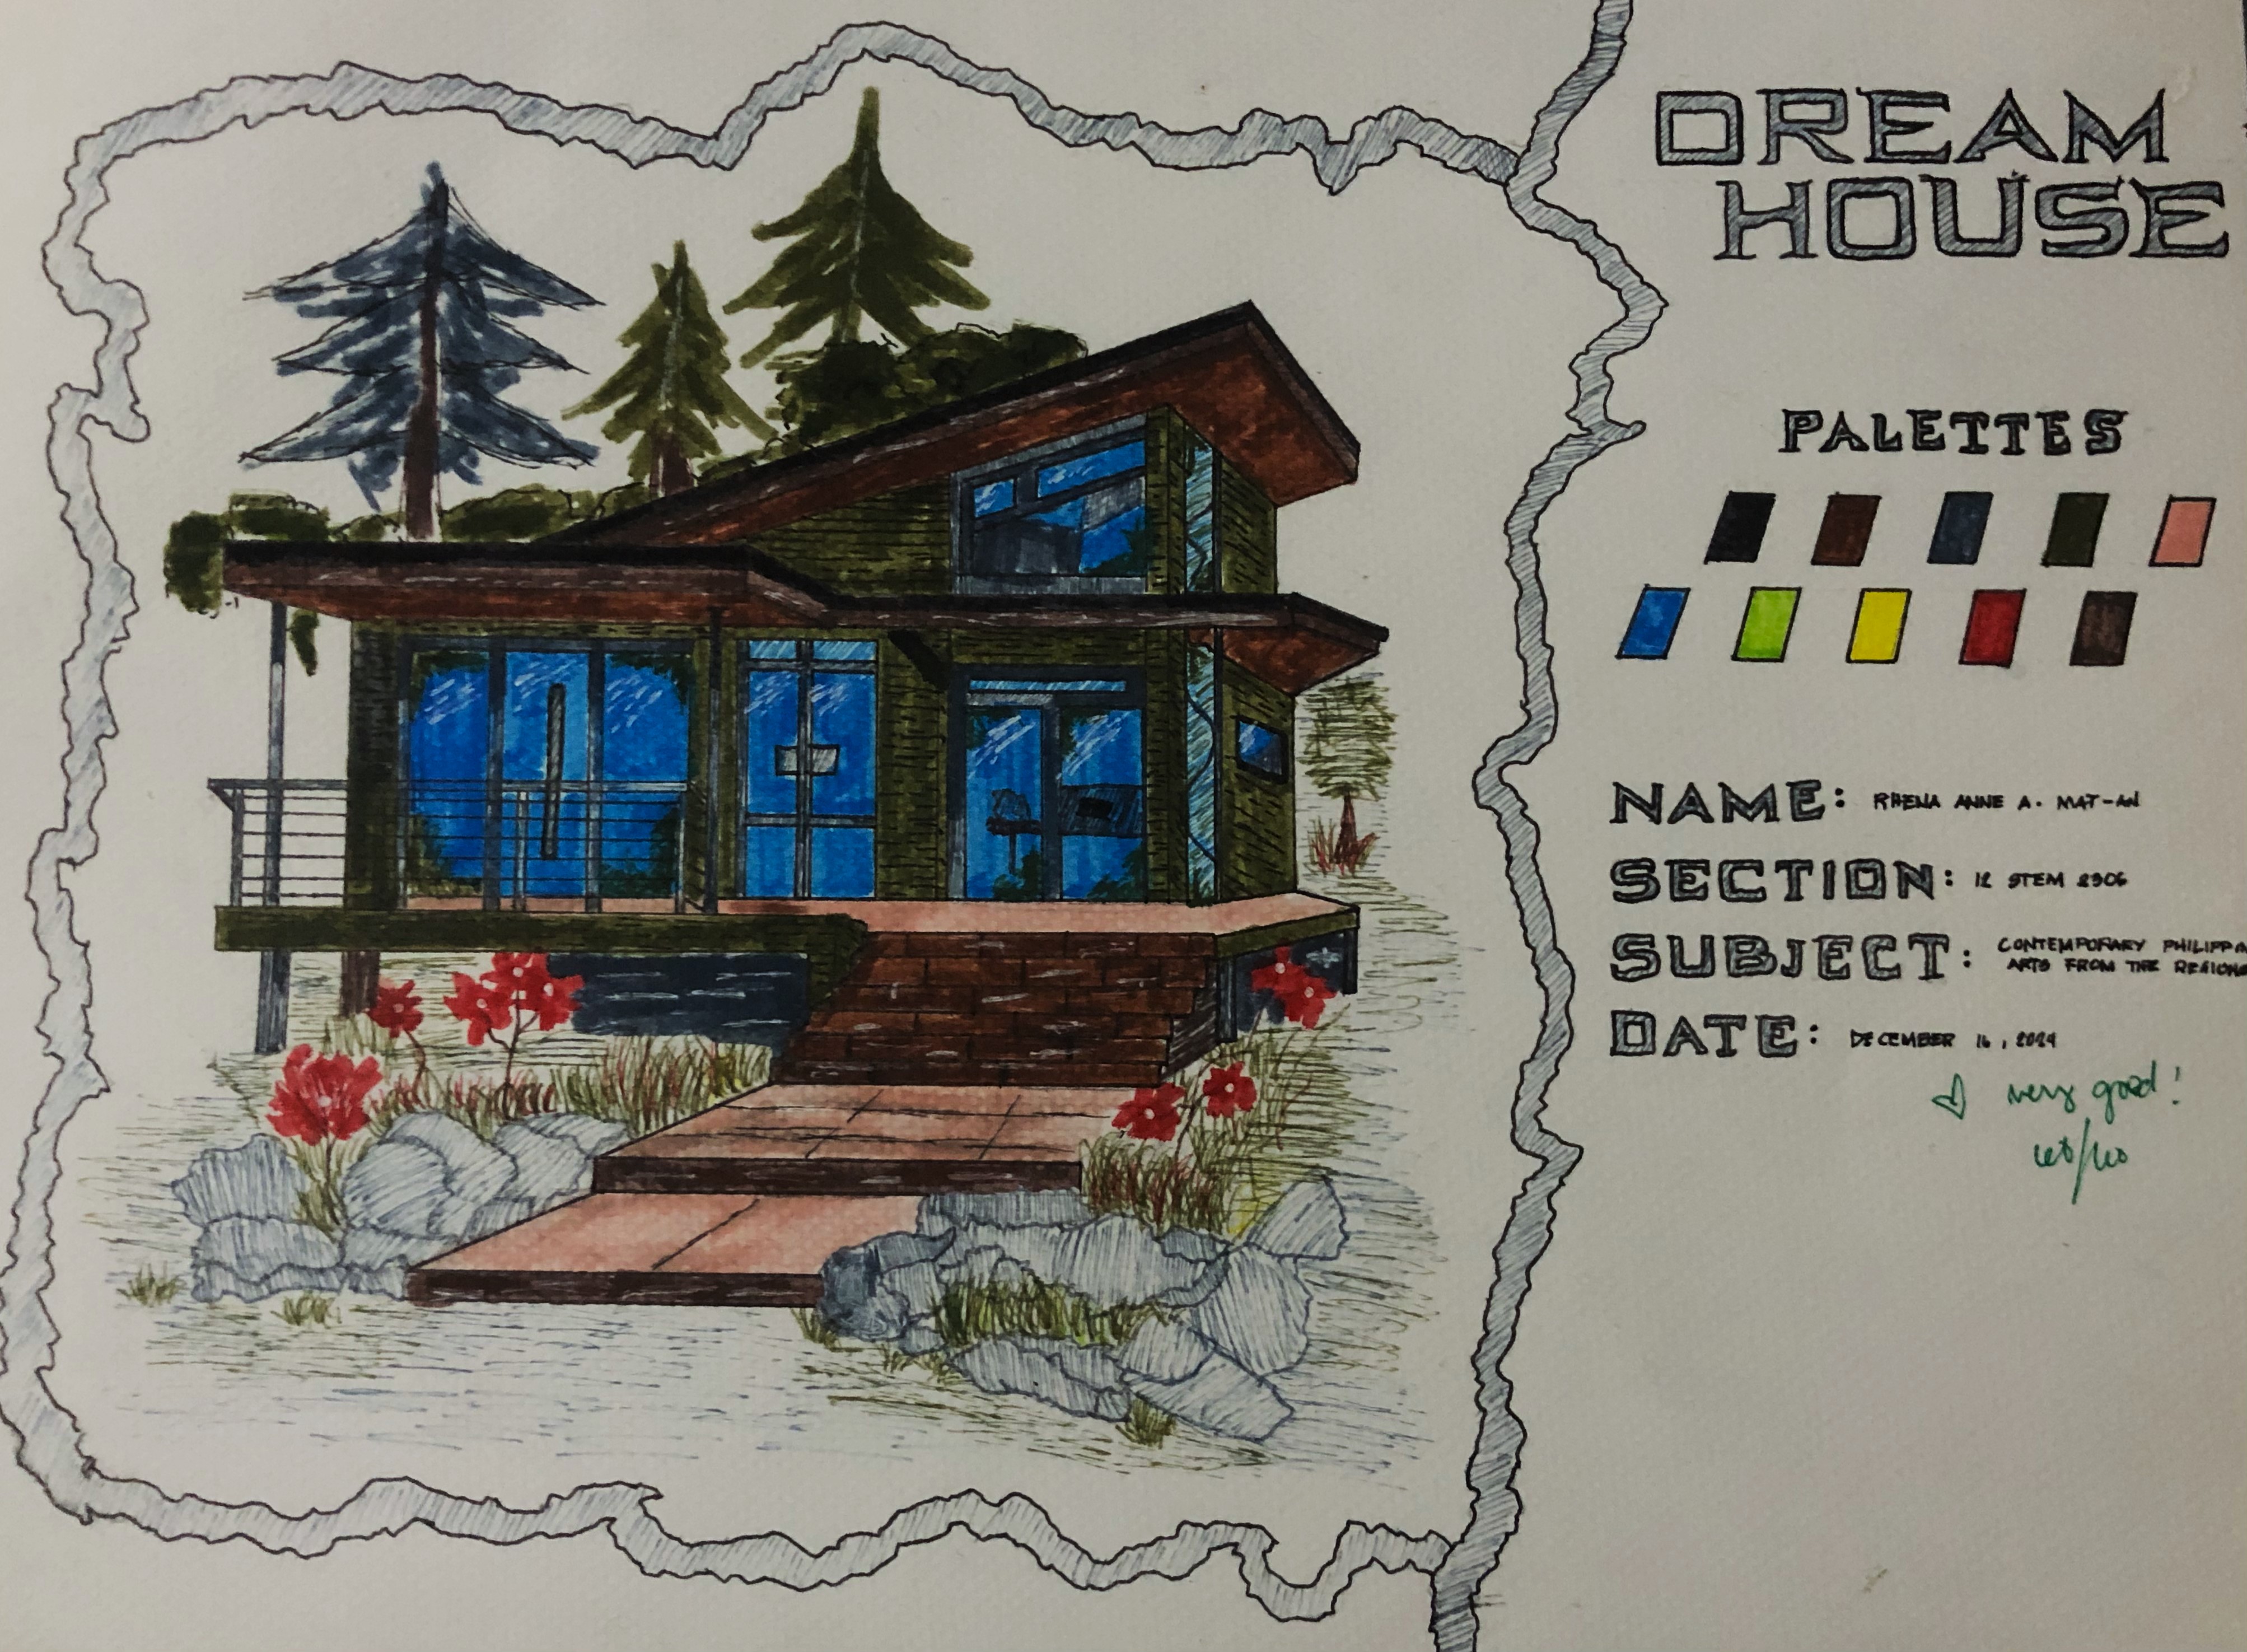 DREAM
HOUSE
PALETTES
NAME: RHENA ANNE A. MAT-AN
SECTION: 12 STEM 2306
SUBJECT: CONTEMPORARY PHILIPPIN
ARTS FROM THE REGIONS
DATE: DECEMBER 16, 2024
very good!